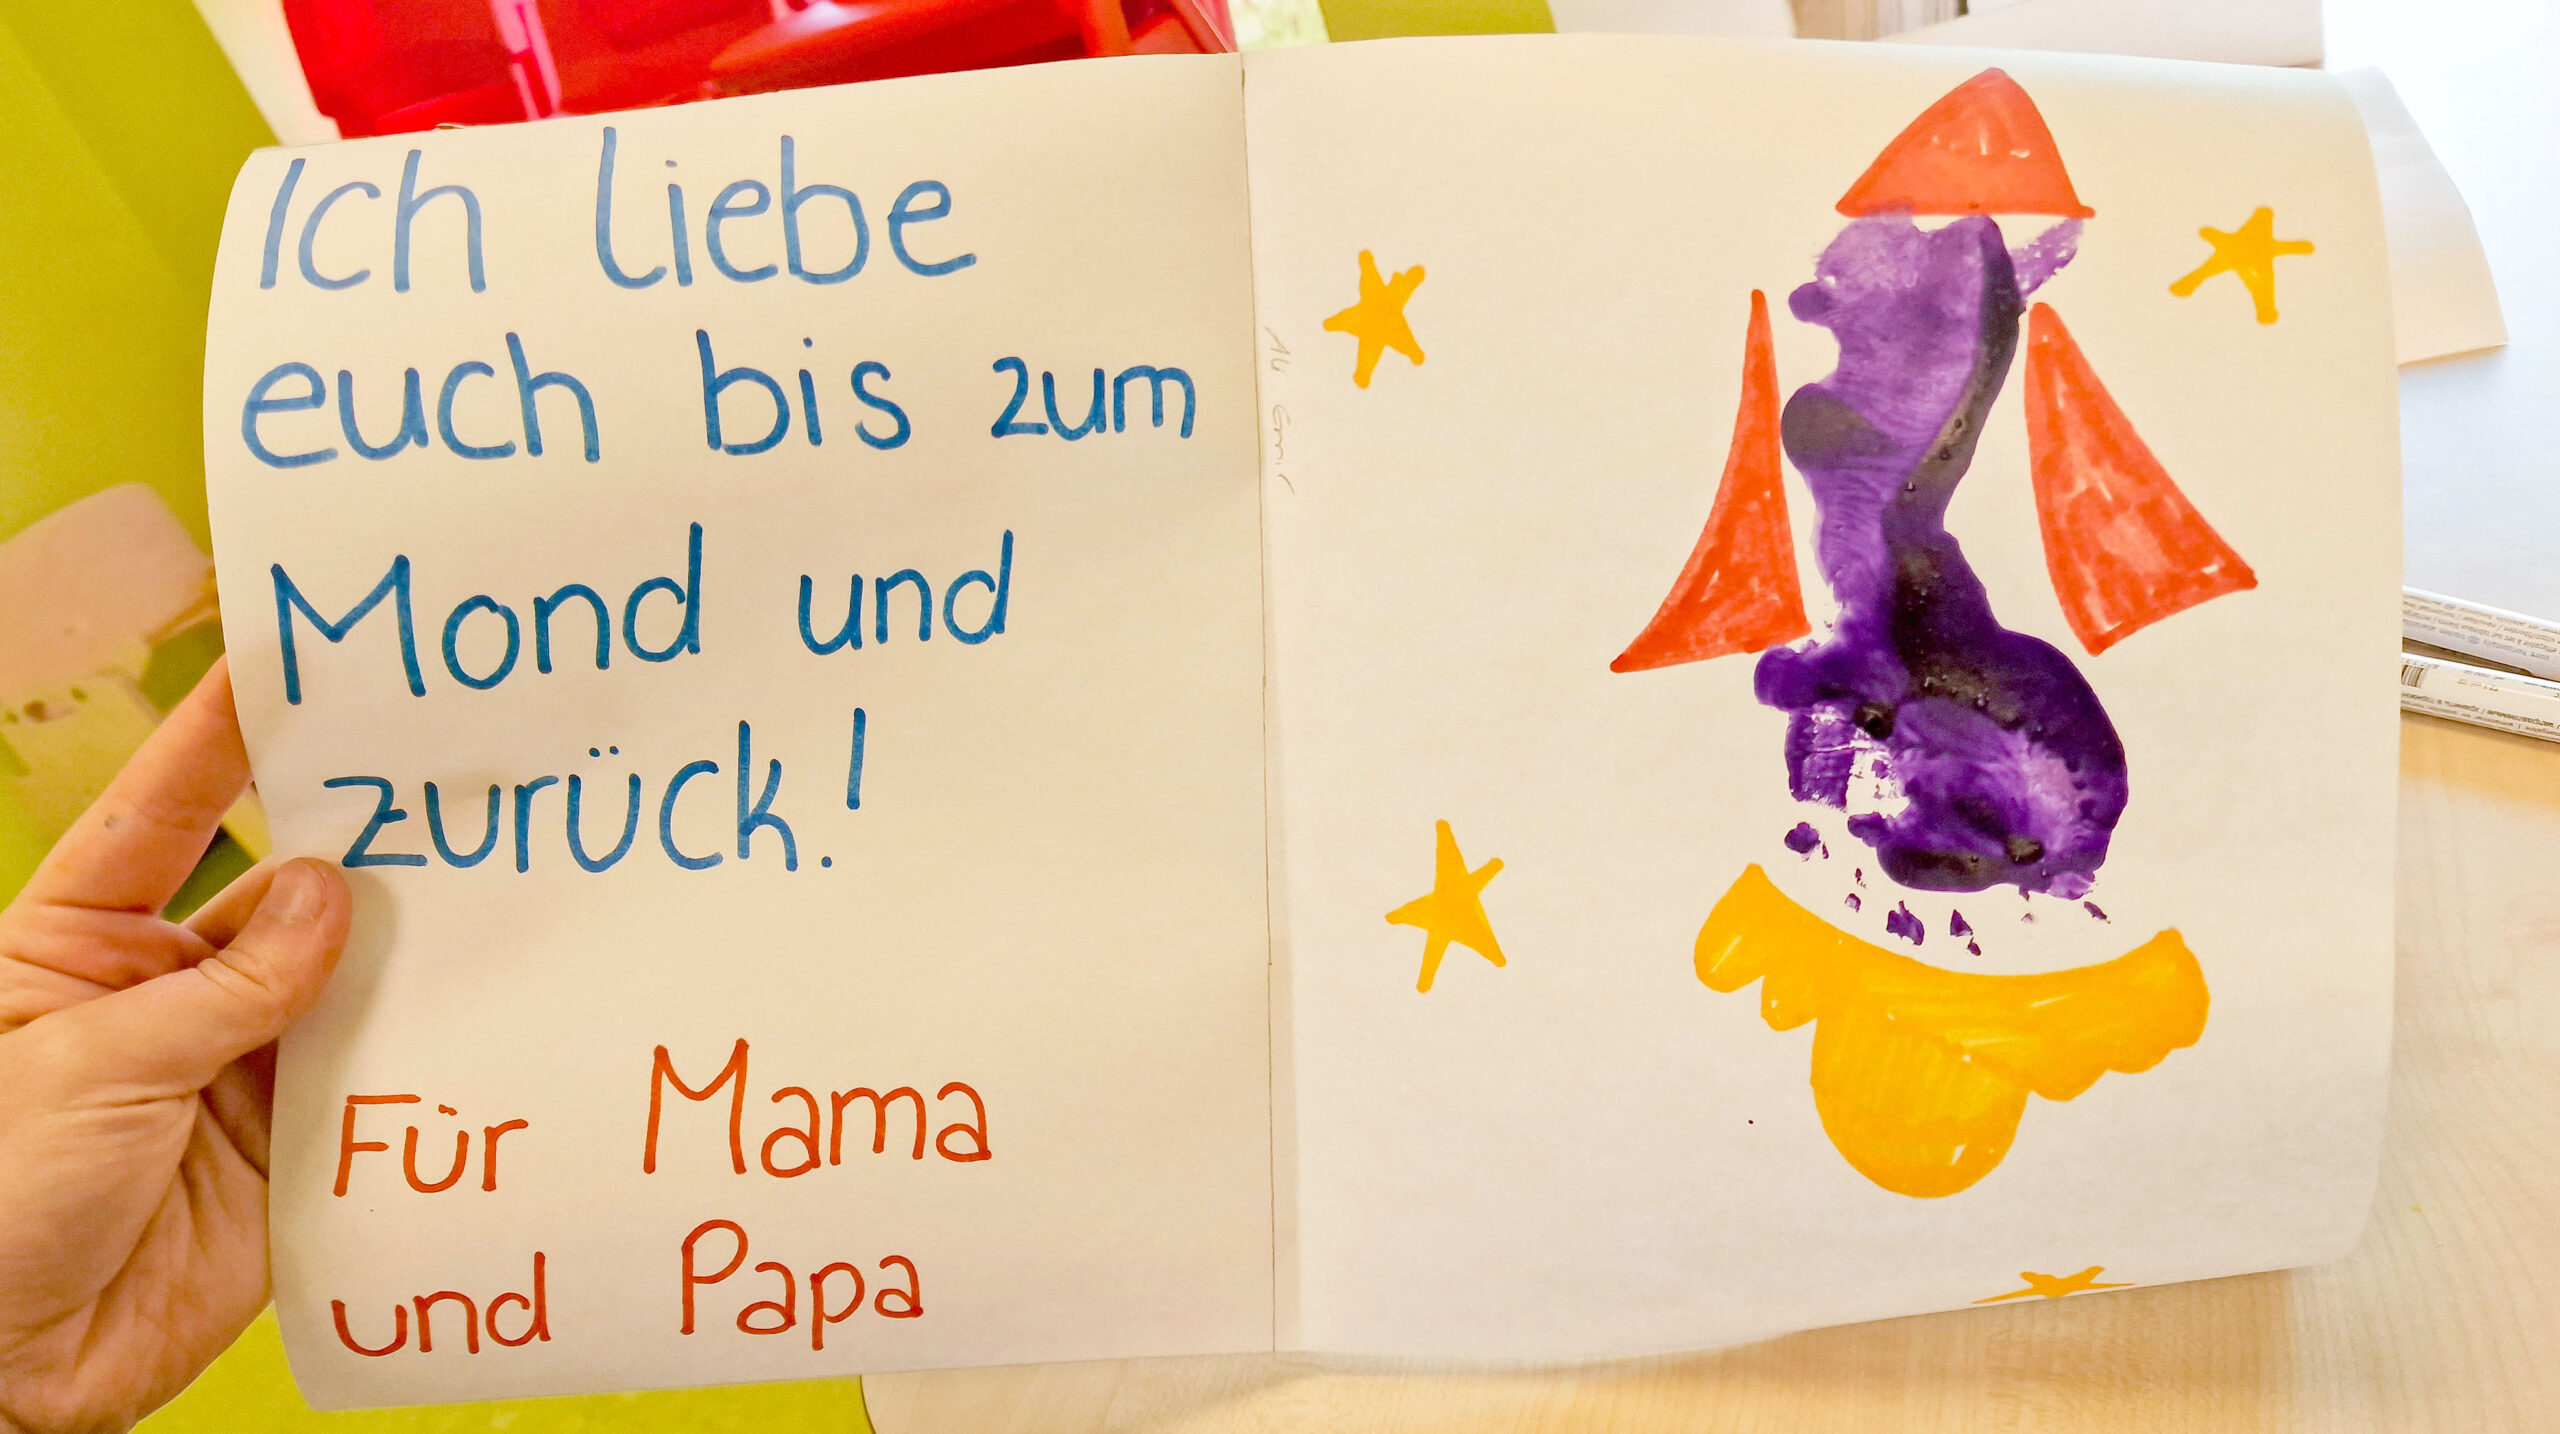 Ich liebe
euch bis zum
Mond und
zurück!
Für Mama
und Papa